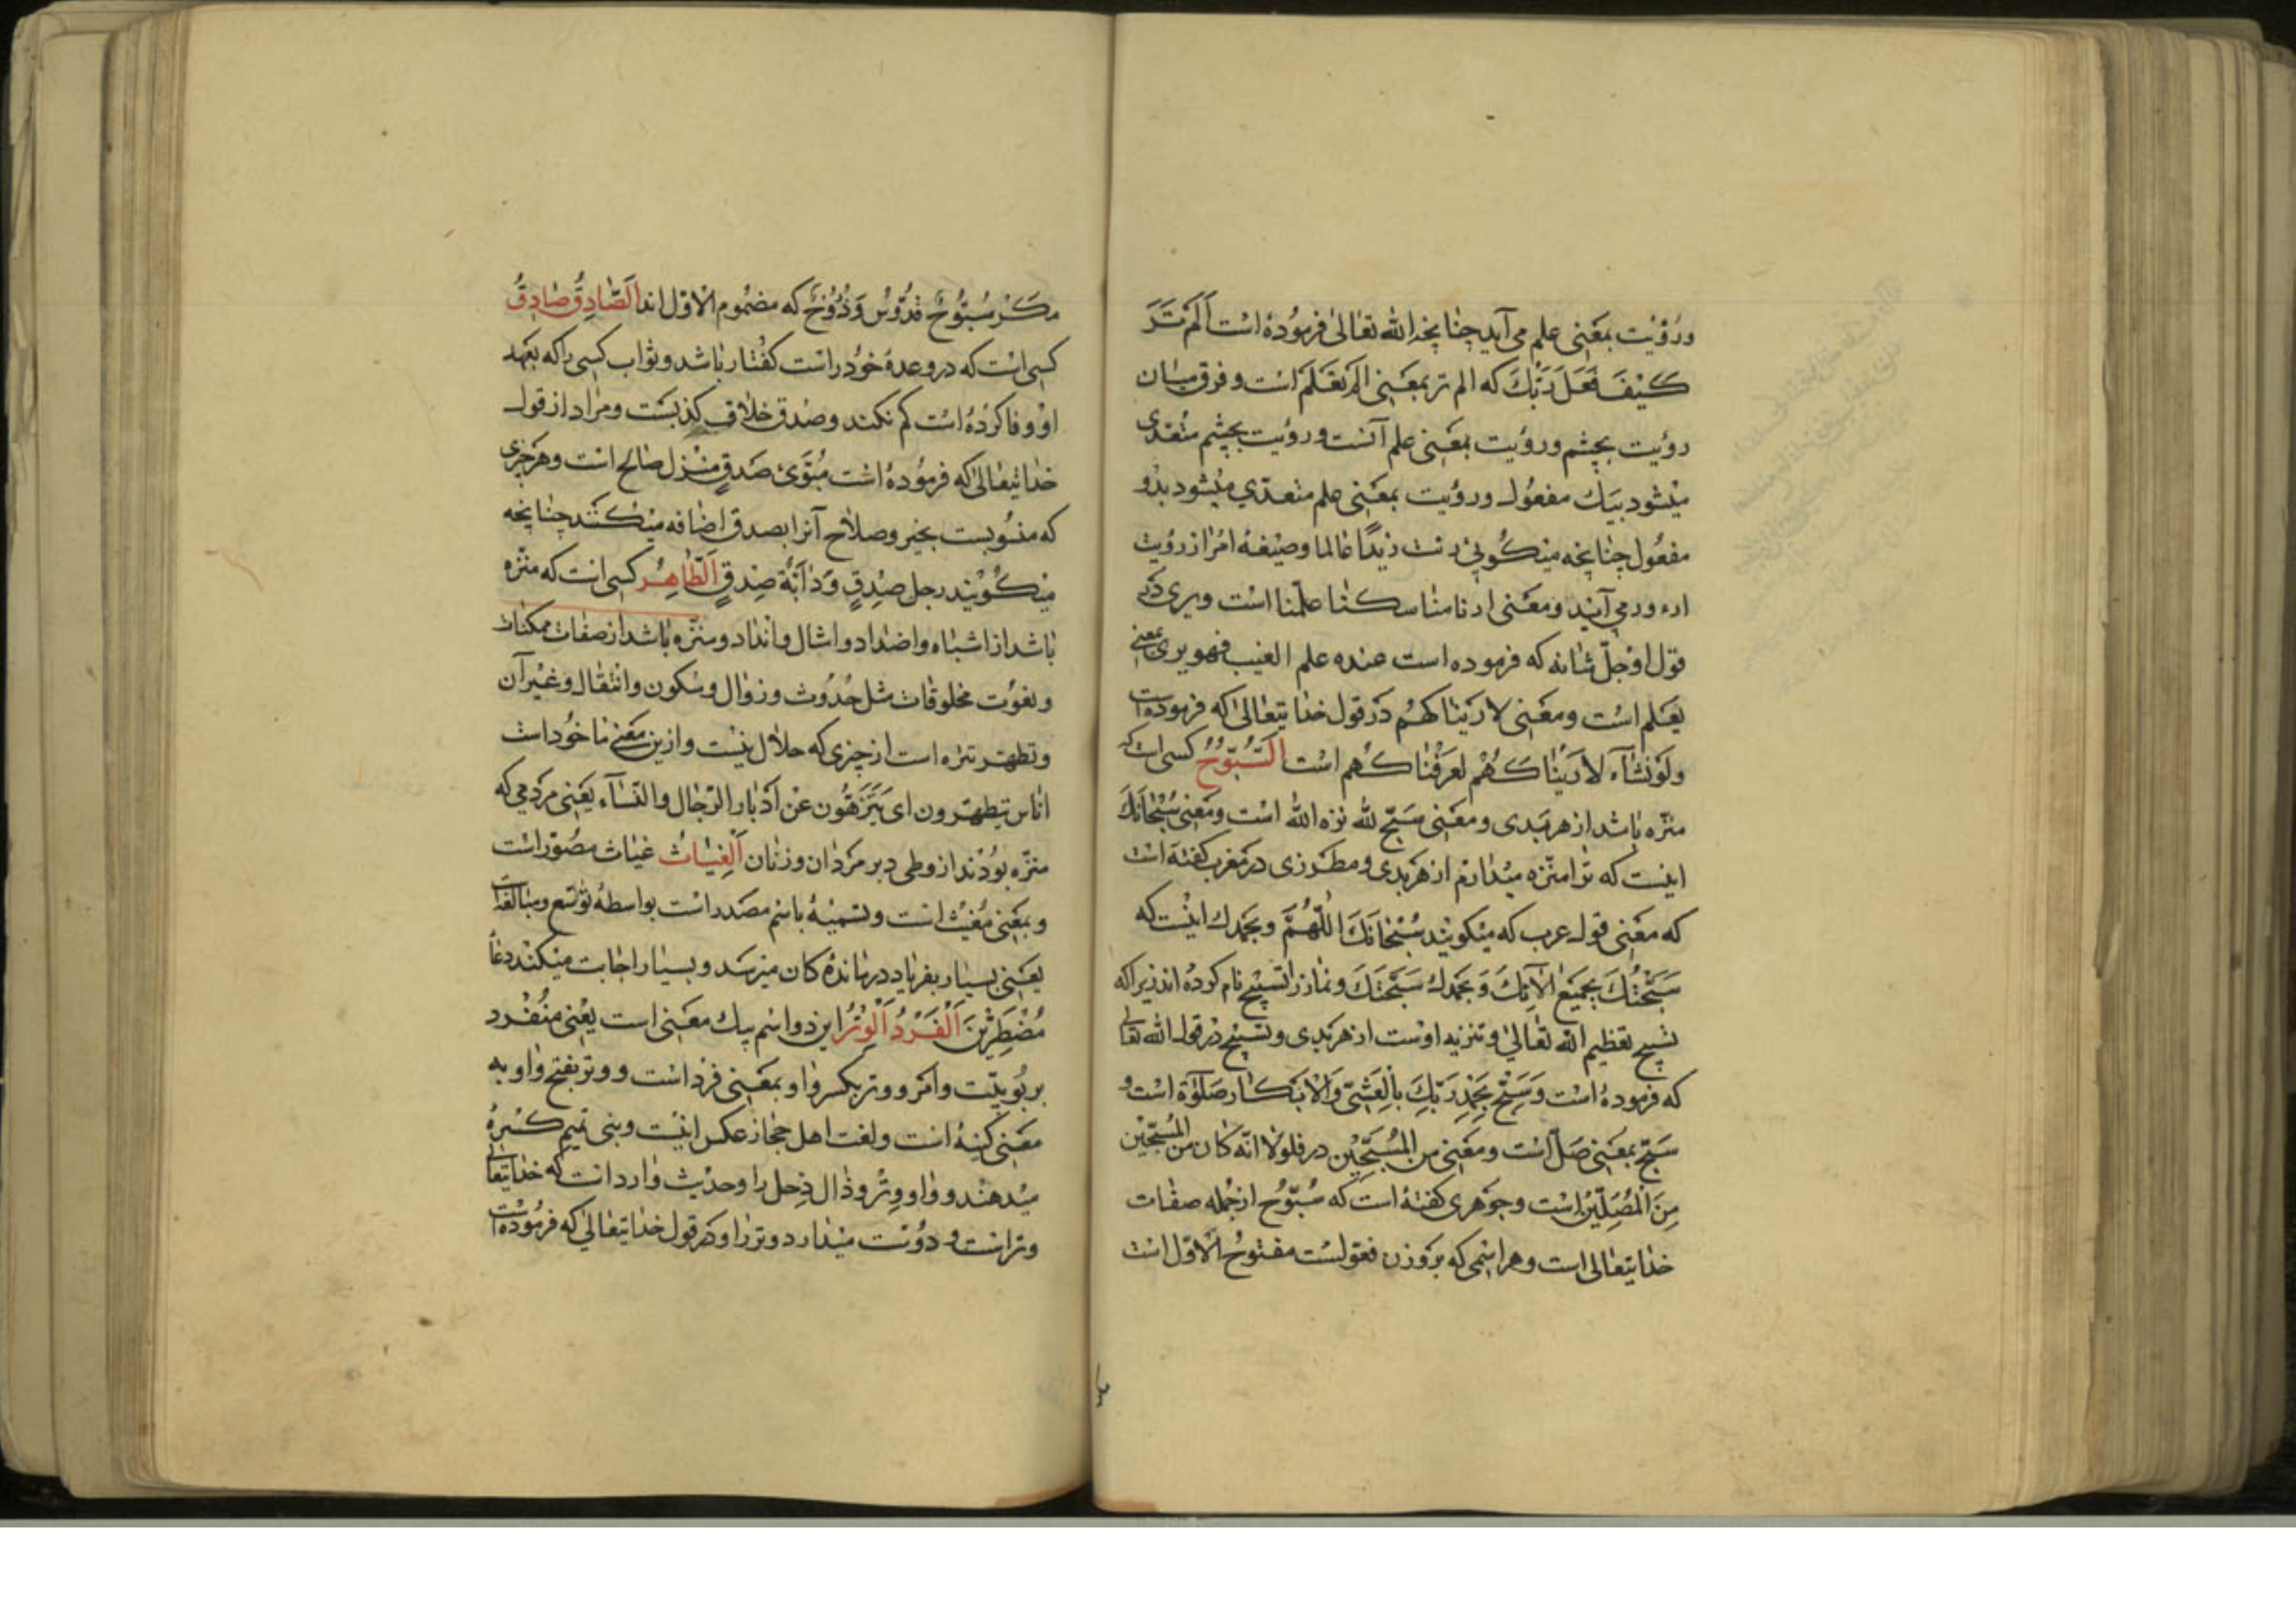 ورؤیت بمعنی علم می آید چنانچه الله تعالی فرموده است اَلَمْ تَرَ
کَیْفَ فَعَلَ رَبُّكَ که الم تر بمعنی الم تعلم است و فرق میان
رؤیت بچشم ورؤیت بمعنی علم آنست ورؤیت بچشم متعدی
میشود بیك مفعول ورؤیت بمعنی علم متعدّی میشود بدو
مفعول چنانچه میکوئی رئت زیدًا عالما وصیغهٔ امر از رؤیت
ارء ورمی آید ومعنی ارنا مناسکنا علّمنا است ویری در
قول او جلّ شانه که فرموده است عنده علم الغیب فهو یری بمعنی
یعلم است ومعنی لاریناکهم در قول خدایتعالی که فرموده است
ولو نشآء لاریناکهم لعرّفناکهم است اَلسُّبُّوحُ کسی است که
منزّه باشد از هر بدی ومعنی سبّح لله نزه الله است ومعنی سُبْحٰانَكَ
اینست که ترا منزه میدارم از هر بدی ومطرزی در مغرب کفته است
که معنی قول عرب که میکویند سُبْحٰانَكَ اللّهُمَّ وبحمدك اینست که
سَبَّحْتُكَ بجمیع اٰلآئِكَ وَبحمدك سَبَّحْتَكَ ونماز را تسبیح نام کرده اند زیرا که
تسبیح تعظیم الله تعالی وتنزیه اوست از هر بدی وتسبیح در قول الله تعالی
که فرموده است وَسَبِّحْ بِحَمْدِ رَبِّكَ بِالْعَشِیِّ وَالْاِبْکٰار صَلٰوة است و
سَبِّحْ بمعنی صَلِّ است ومعنی من المُسَبِّحِیْن در فلولا انّه کان من المُسَبِّحیْن
مِنَ الْمُصَلِّیْن است وجوهری کفته است که سُبّوُح از جمله صفات
خدایتعالی است وهر اسمی که بر وزن فعّولست مفتوحُ الاوّل است
مکر سُبُّوحٌ قُدُّوسٌ وَذُرُّوحٌ که مضموم الاوّل اند اَلصّٰادِقُ صٰادِقُ
کسی است که در وعدهٔ خود راست کفتار باشد وثواب کسی را که بعهد
او وفا کرده است کم نکند وصدق خلاف کذبست ومراد از قول
خدایتعالی که فرموده است مُبَوَّءَ صِدقٍ منزل صالح است وهر چیزی
که منسوبست بخیر وصلاح آنرا بصدق اضافه میکنند چنانچه
میکویند رجل صِدقٍ وَدٰابَّة صِدقٍ اَلطّٰاهِرُ کسی است که منزّه
باشد از اشباه واضداد وامثال وانداد ومنزّه باشد از صفات ممکنات
ونعوت مخلوقات مثل حدُوث وزوال وسکون وانتقال وغیر آن
وتطهّر تنزه است از چیزی که حلال نیست وازین معنی ماخوذاست
اناس یتطهّرون ای یَتَنَزَّهُون عن ادبار الرّجال والنّسآء یعنی مردمی که
منزّه بودند از وطی دبر مردان وزنان اَلْغِیٰاثُ غیاث مصوّر است
وبمعنی مُغیث است وتسمیهٔ باسم مصدر است بواسطهٔ توسّع ومبالغه است
یعنی بسیار بفریاد درماندهٔ کان میرسد وبسیار اجابت میکند دعاءً
مُضْطَرِّیْنَ اَلْفَرْدُ اَلْوِتْرُ این دو اسم بیك معنی است یعنی منُفْرد
بربُوبیّت وامر ووتر بکسر واو بمعنی فرد است ووتر بفتح واو به
معنی کینهٔ است ولغت اهل حجاز عکس اینست وبنی تمیم کسره
میدهند وواو ووِتْر وذٰال ذِحل را وحدیث وارد است که خدایتعالی
وتراست ودوست میدارد وتر را ودر قول خدایتعالی که فرموده است